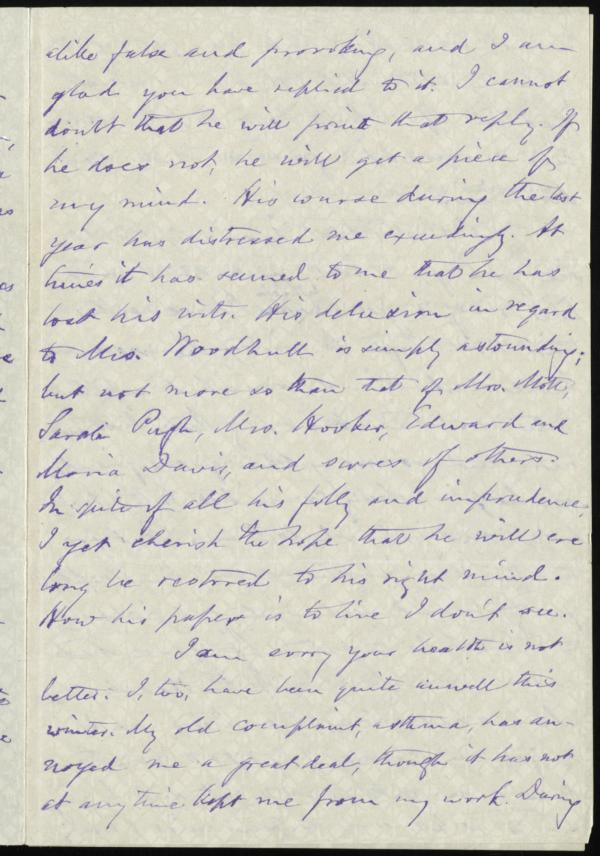 alike false and provoking, and I am
glad you have replied to it. I cannot
doubt that he will print that reply. If
he does not, he will get a piece of
my mind. His course during the last
year has distressed me exceedingly. At
times it has seemed to me that he has
lost his wits. His delusion in regard
to Mrs. Woodhull is simply astounding;
but not more so than that of Mrs. Mott,
Sarah Pugh, Mrs. Hooker, Edward and
Maria Davis, and scores of others.
In spite of all his folly and imprudence,
I yet cherish the hope that he will ere
long be restored to his right mind.
How his paper is to live I don't see.
I am sorry your health is not
better. I, too, have been quite unwell this
winter. My old complaint, asthma, has an-
noyed me a great deal, though it has not
at any time kept me from my work. During